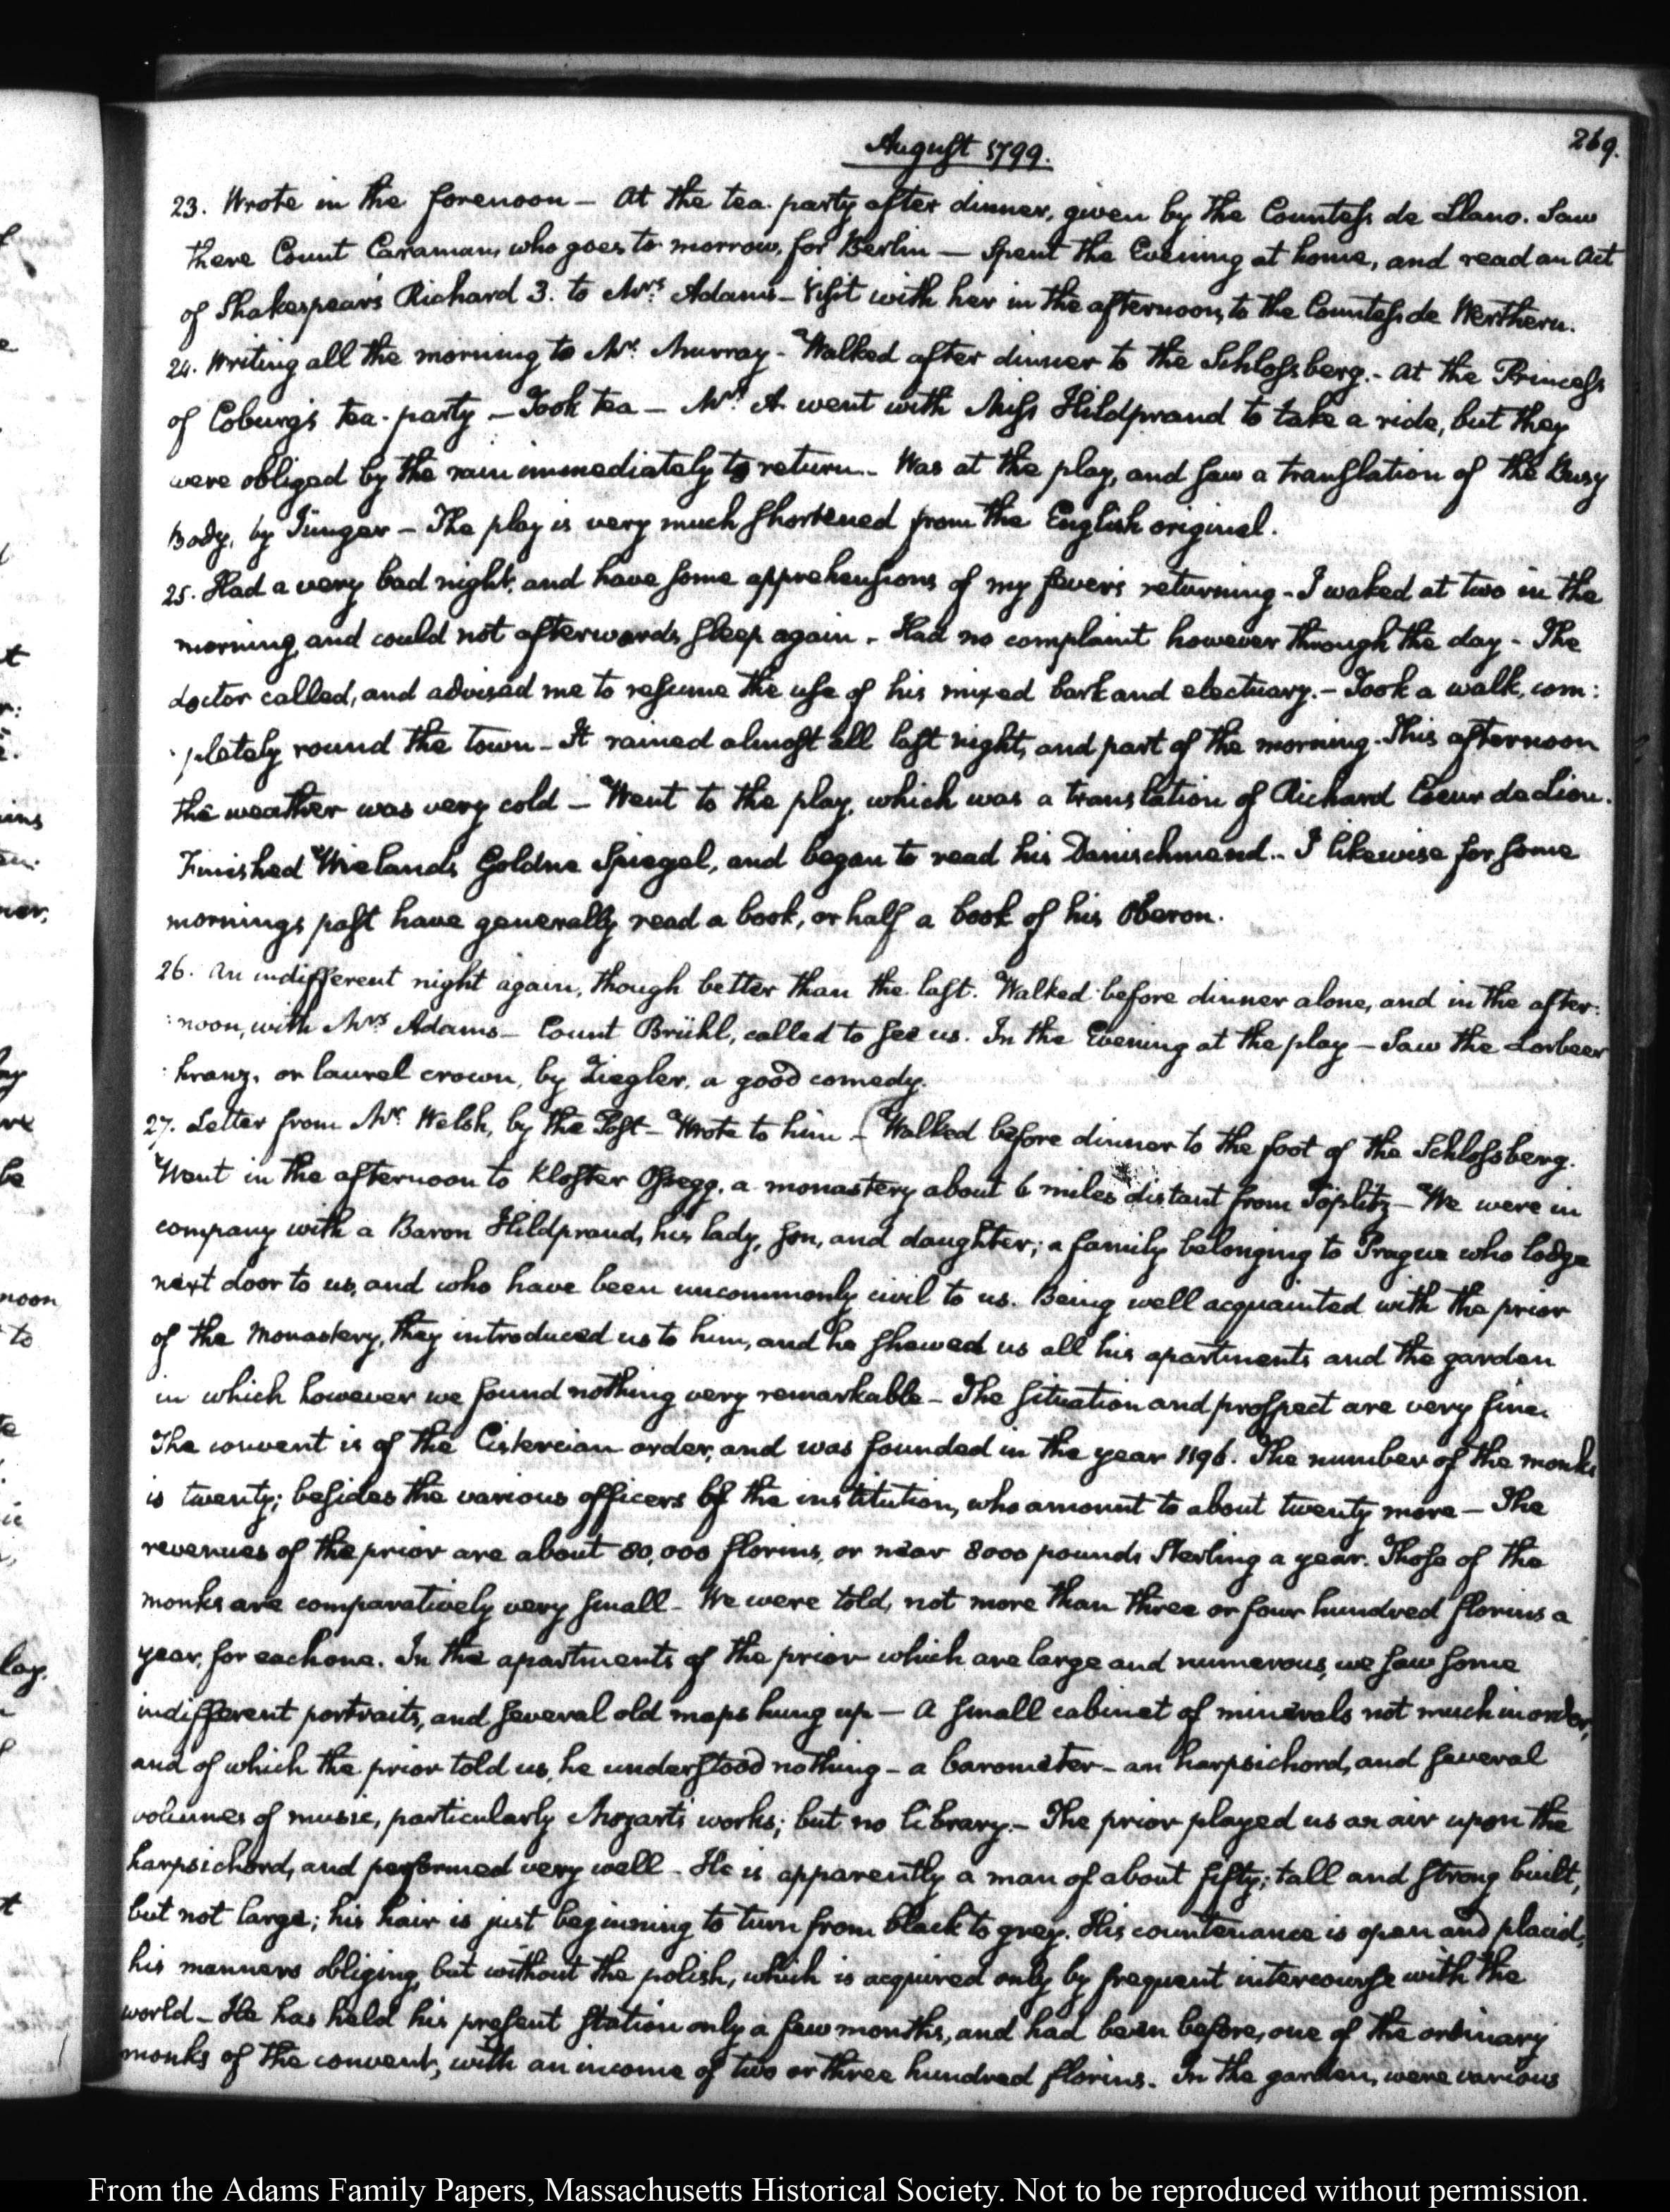 269.
August 1799.
23. Wrote in the forenoon — At the tea-party after dinner, given by the Countess de Llano. Saw
there Count Caraman, who goes to morrow, for Berlin — Spent the Evening at home, and read an Act
of Shakespear's Richard 3. to Mrs. Adams — Visit with her in the afternoon, to the Countess de Werthern.
24. Writing all the morning to Mr. Murray — Walked after dinner to the Schlossberg. — At the Princess
of Coburg's tea-party — Took tea — Mrs. A. went with Miss Hildprand to take a ride, but they
were obliged by the rain immediately to return — Was at the play, and saw a translation of the Busy
Body, by Jünger — The play is very much shortened from the English original.
25. Had a very bad night, and have some apprehensions of my fever's returning — I waked at two in the
morning, and could not afterwards sleep again — Had no complaint however through the day — The
doctor called, and advised me to resume the use of his mixed bark and electuary. — Took a walk, com:
:pletely round the town — It rained almost all last night, and part of the morning. This afternoon
the weather was very cold — Went to the play, which was a translation of Richard Coeur de Lion.
Finished Wielands Goldne Spiegel, and began to read his Danischmend — I likewise for some
mornings past have generally read a book, or half a book of his Oberon.
26. An indifferent night again, though better than the last. Walked before dinner alone, and in the after:
:noon, with Mrs. Adams — Count Brühl, called to see us. In the Evening at the play — Saw the Lorbeer
:kranz, or laurel crown, by Ziegler, a good comedy.
27. Letter from Mr. Welsh, by the Post — Wrote to him — Walked before dinner to the foot of the Schlossberg.
Went in the afternoon to Kloster Ossegg, a monastery about 6 miles distant from Töplitz — We were in
company with a Baron Hildprand, his lady, son, and daughter; a family belonging to Prague who lodge
next door to us, and who have been uncommonly civil to us. Being well acquainted with the prior
of the Monastery, they introduced us to him, and he shewed us all his apartments and the garden
in which however we found nothing very remarkable — The situation and prospect are very fine.
The convent is of the Cistercian order, and was founded in the year 1196. The number of the monks
is twenty; besides the various officers of the institution, who amount to about twenty more — The
revenues of the prior are about 80,000 florins, or near 8000 pounds Sterling a year. Those of the
monks are comparatively very small — We were told, not more than three or four hundred florins a
year, for each one. In the apartments of the prior which are large and numerous, we saw some
indifferent portraits, and several old maps hung up — A small cabinet of minerals not much in order,
and of which the prior told us, he understood nothing — a barometer — an harpsichord, and several
volumes of music, particularly Mozart's works; but no library. — The prior played us an air upon the
harpsichord, and performed very well — He is apparently a man of about fifty; tall and strong built,
but not large; his hair is just beginning to turn from black to grey. His countenance is open and placid;
his manners obliging, but without the polish, which is acquired only by frequent intercourse with the
world — He has held his present station only a few months, and had been before, one of the ordinary
monks of the convent, with an income of two or three hundred florins. In the garden, were various
From the Adams Family Papers, Massachusetts Historical Society. Not to be reproduced without permission.